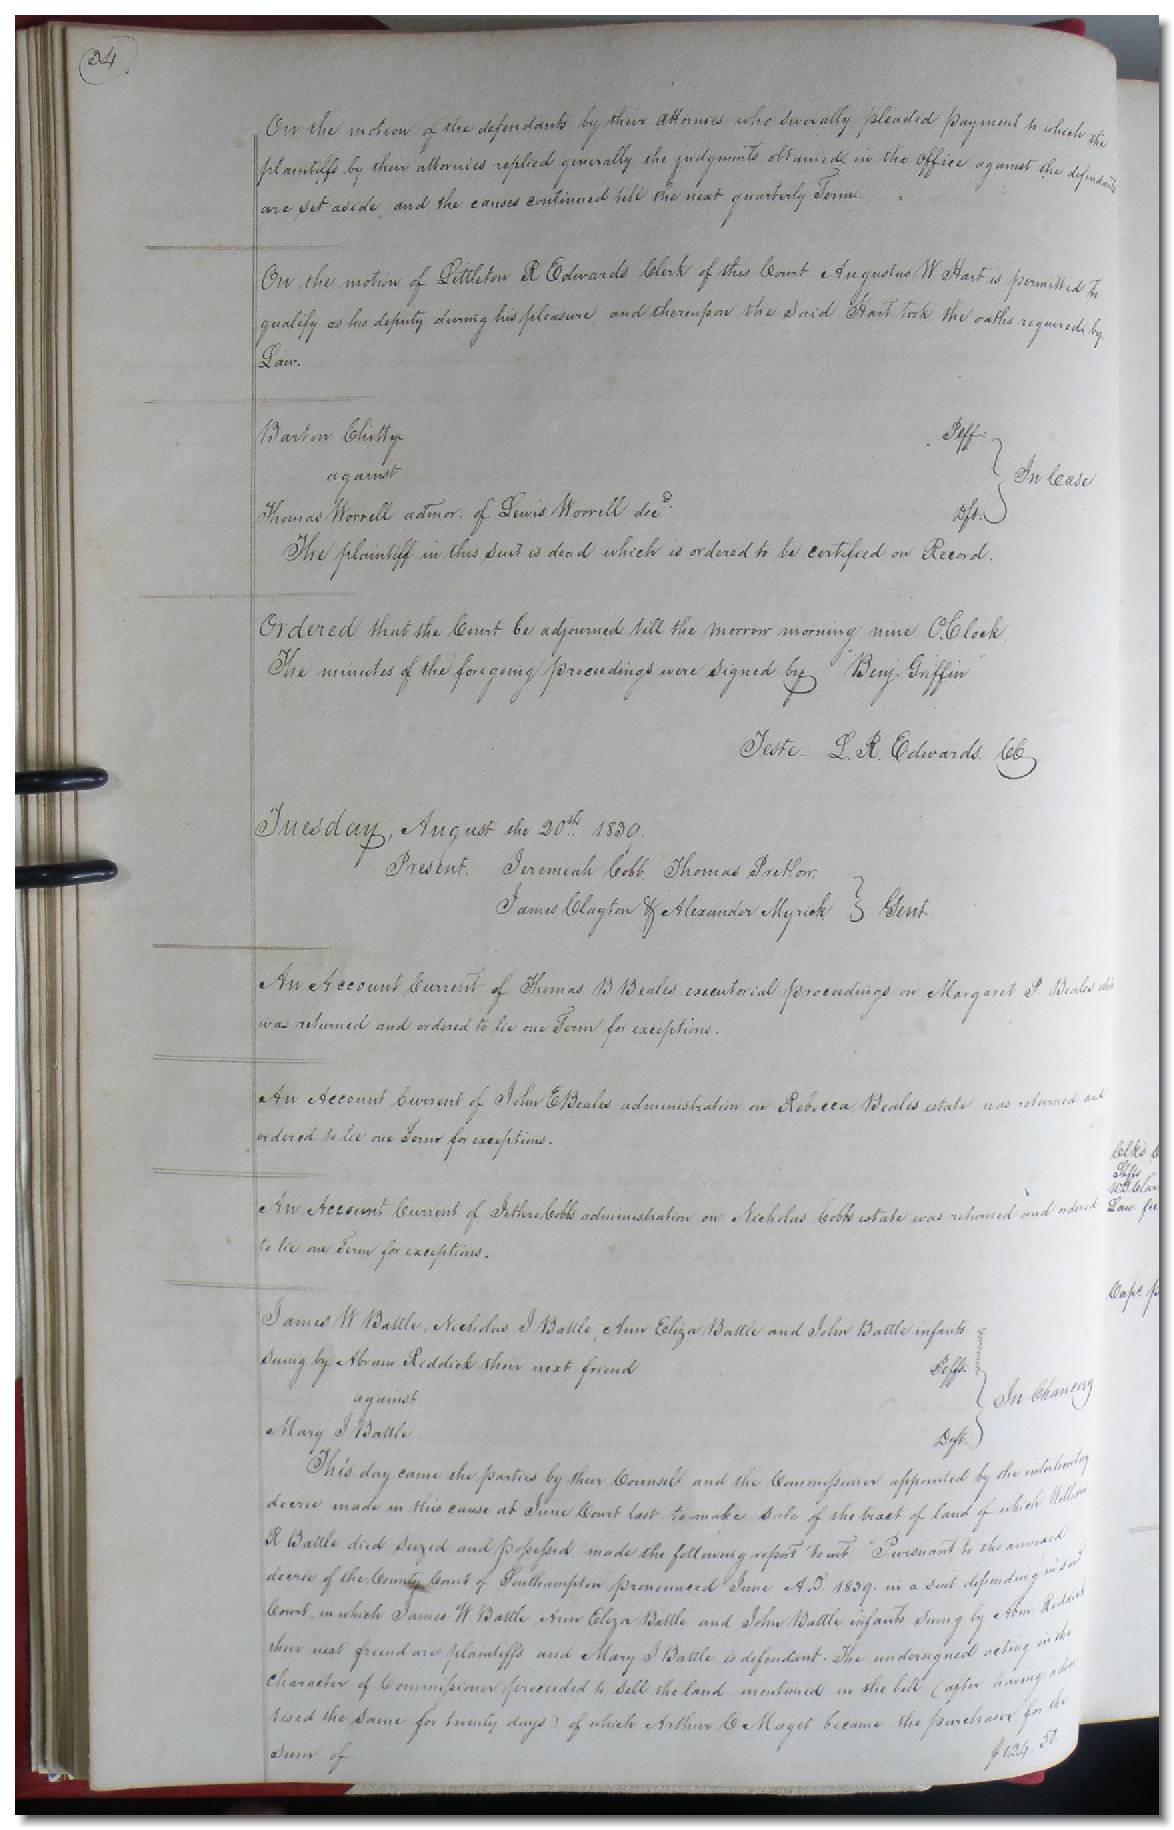 34
On the motion of the defendants by their attornies who severally pleaded payment to which the
plaintiffs by their attornies replied generally the judgments obtained in the office against the defendants
are set aside, and the causes continued till the next quarterly Term.
On the motion of Littleton R Edwards Clerk of this Court Angustus W Hart is permitted to
qualify as his deputy during his pleasure, and thereupon the said Hart took the oaths required by
Law.
Barton Chitty Plff.
against In Case
Thomas Worrell admor. of Lewis Worrell decd. Dft.
The plaintiff in this suit is dead which is ordered to be certified on Record.
Ordered that the Court be adjourned till the morrow morning nine O.Clock
The minutes of the foregoing proceedings were signed by "Benj. Griffin"
Teste L. R. Edwards CC
Tuesday, August the 20th 1839.
Present. Jeremiah Cobb, Thomas Pretlow.
James Clayton & Alexander Myrick } Gent.
An Account Current of Thomas B Beales executorial proceedings on Margaret S. Beales
was returned and ordered to lie one Term for exceptions.
An Account Current of John E Beales administration on Rebecca Beales estate was returned and
ordered to lie one Term for exceptions.
An Account Current of Jethro Cobbs administration on Nicholas Cobbs estate was returned and ordered
to lie one Term for exceptions.
James W Battle, Nicholas J Battle, Ann Eliza Battle and John Battle infants
suing by Abram Riddick their next friend Plffs.
against In Chancery
Mary J Battle Dft.
This day came the parties by their Counsel and the Commissioner appointed by the interlocutory
decree made in this cause at June Court last to make sale of the tract of land of which William
R Battle died seized and possessed made the following report To wit, "Pursuant to the annexed
decree of the County Court of Southampton pronounced June A.D. 1839. in a suit depending in said
Court, in which James W Battle Ann Eliza Battle and John Battle infants suing by Abm. Riddick
their next friend are plaintiffs and Mary J Battle is defendant. The undersigned acting in the
character of Commissioner proceeded to sell the land mentioned in the bill (after having adver
tised the same for twenty days) of which Arthur C Maget became the purchaser for the
sum of $124.50.
Clk's
Law. fee
Capt.